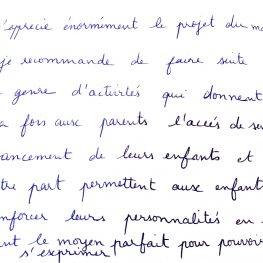 j'apprécie énormément le projet du
je recommande de faire suite
genre d'activités qui donnent
fois aux parents l'accés de
ancement de leurs enfants et
part permettent aux enfant
enforcer leurs personnalités en
le moyen parfait pour pouvoir
s'exprimer